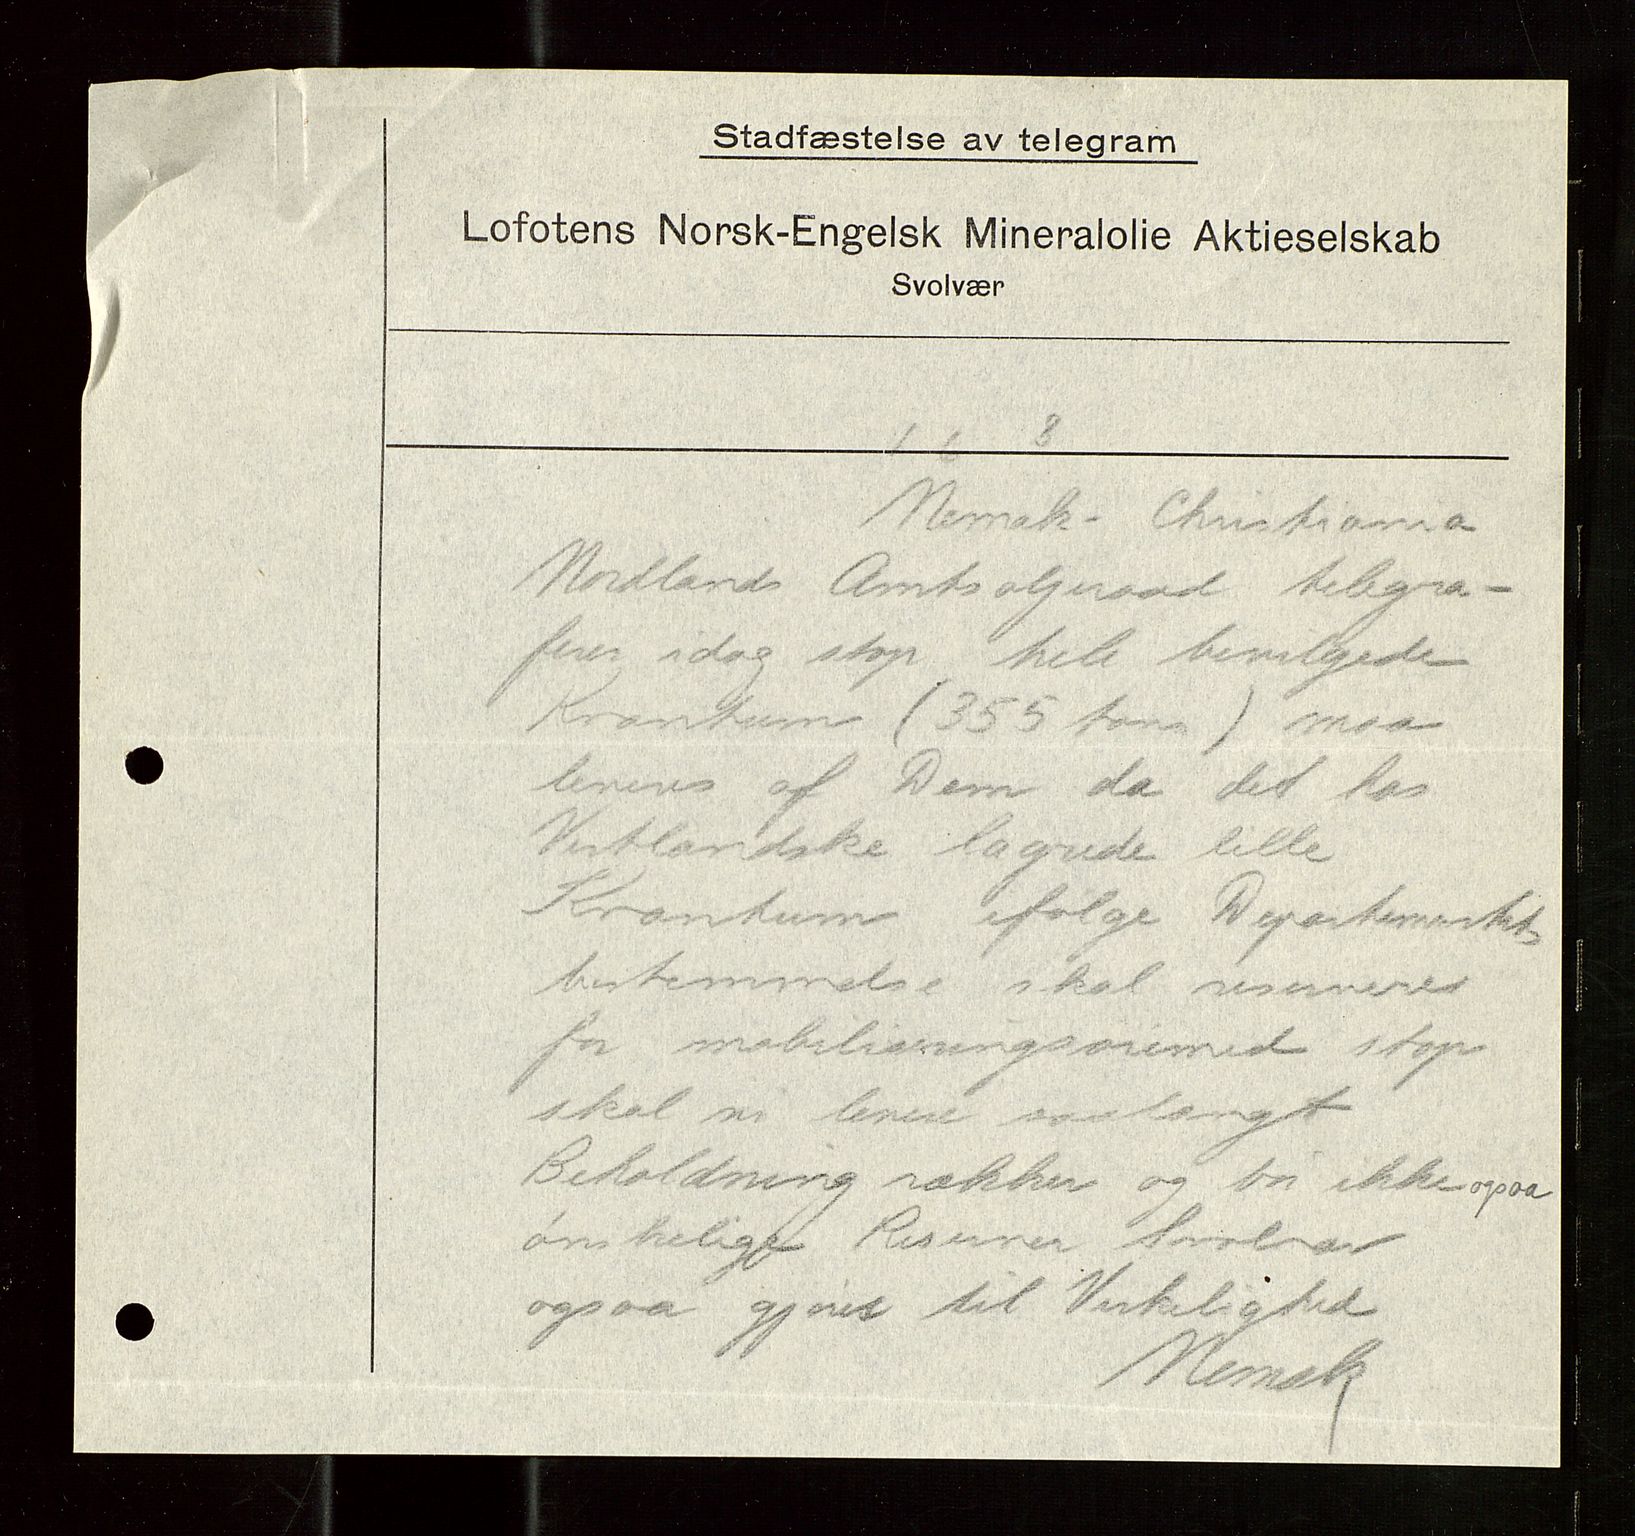 Stadfæstelse av telegram
Lofotens Norsk-Engelsk Mineralolie Aktieselskab
Svolvær
Nemak - Christiania
Nordlands Amtsoljeraad telegra-
ferer idag stop hele bevilgede
Kvantum (355 tons) maa
leveres af Dem da det hos
Vestlandske lagrede lille
Kvantum ifølge Departementets
bestemmelse skal reserveres
for mobiliseringsøiemed stop
skal vi levere saalangt
Beholdning rækker og bør ikke ogsaa
ønskelige Reserver Svolvær
ogsaa gjøres til Virkelighed
Nemak